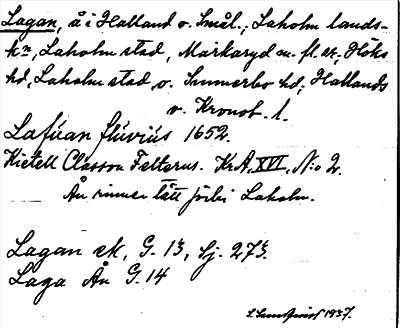 Lagan, å i Halland o. Smål.; Laholm lands-
kn, Laholm stad, Markaryd m. fl. sr. Höks
hd, Laholm stad, o. Sunnerbo hd, Hallands
o. Kronob. l.
Lafúan flúviús 1652.
Kietell Classon Felterus. KrA, XVI, N:o 2.
Ån rinner tätt förbi Laholm.
Lagan ek, G. 13, Sj. 273.
Laga Ån G. 14
1937.